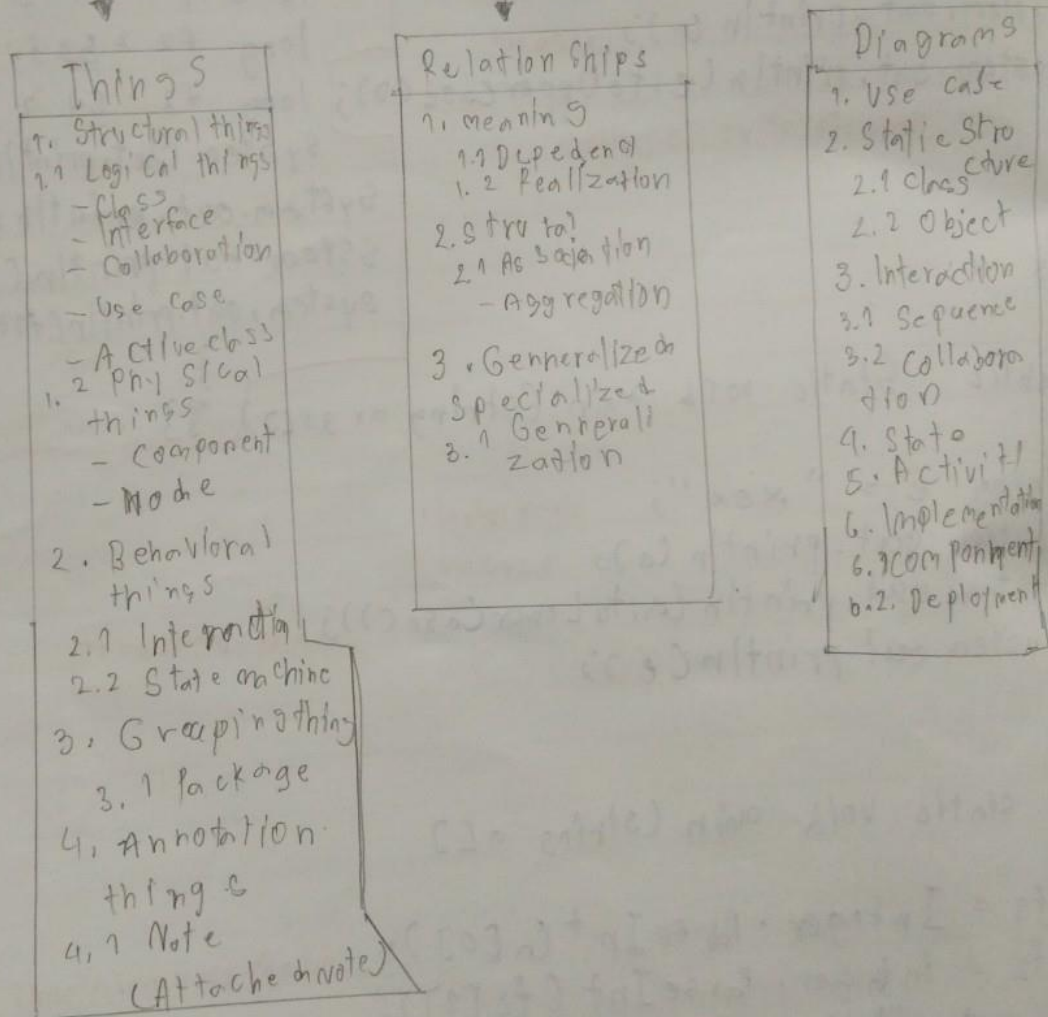 Things
1. Structural things
1.1 Logical things
- Class
- Interface
- Collaboration
- Use case
- Active class
1.2 Physical
things
- Component
- Node
2. Behavioral
things
2.1 Interaction
2.2 State machine
3. Grouping thing
3.1 Package
4. Annotation
things
4.1 Note
(Attached note)
Relation Ships
1. meaning
1.1 Depedency
1.2 Realization
2. Strutal
2.1 Assosiation
- Aggregation
3. Genneralized
Specialized
3.1 Genneralli
zation
Diagrams
1. Use case
2. Static Stru
cture
2.1 Class
2.2 Object
3. Interaction
3.1 Sequence
3.2 Collabora
tion
4. State
5. Activity
6. Implementation
6.1 Componment
6.2. Deployment